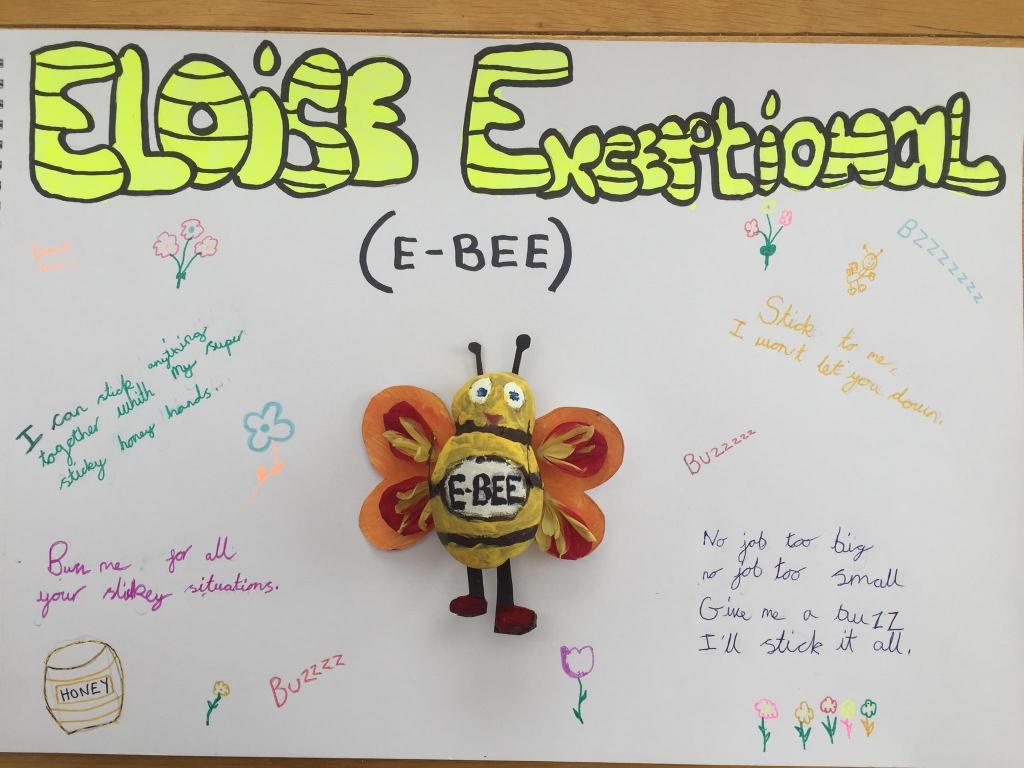 ELOISE EXCEPTIONAL
(E-BEE)
BZZZZZZZZ
Stick to me,
I won't let you down.
I can stick anything
together whith my super
sticky honey hands...
BUZZZZZ
E-BEE
Buzz me for all
your stickey situations.
No job too big
no job too small
Give me a buzz
I'll stick it all.
HONEY
BUZZZZ